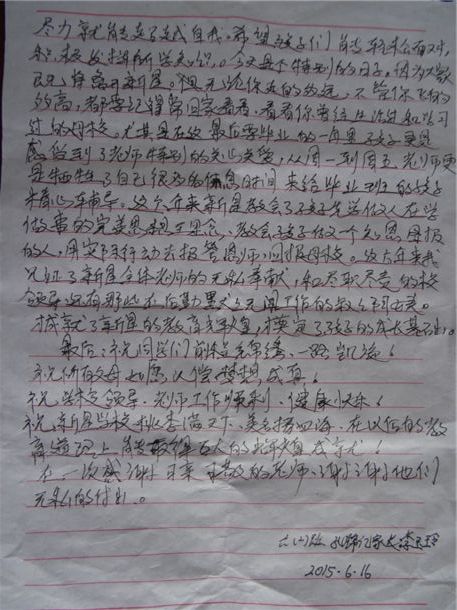 尽力就能造了造成自我。希望孩子们前轻松面对,
积极发挥所学知识。今天是个特别的日子。因为大家
已选择离开新星。但无论你走的多远,不管你飞的
多高,都要记得常回家看看,看看你曾经生活过和学习
过的母校。尤其是在校最后要毕业的一年里孩子更是
感觉到了老师特别的关心关爱,从周一到周五,老师更
是牺牲了自己很多的休息时间来给毕业班的孩子
精心辅导。这个六年来新星教会了孩子先学做人在学
做事的完美思想工理念、教会孩子做一个知恩图报
的人,用实际行动去报答恩师、回报母校。这六年来我
见证了新星全体老师的无私奉献,和尽职尽责的校
领导还有那些在后勤默默无闻工作的教工阿姨。
成就了新星的教育辉煌,奠定了孩子的成长基础。
最后:祝同学们前程似锦、一路凯旋!
祝所有的母如愿以偿梦想成真!
祝学校领导、老师工作顺利、健康快乐!
祝新星学校桃李满天下、美名扬四海,在以后的教
育道路上能取得百人的辉煌成就!
在一次感谢母亲高效的老师、谢谢谢谢他们
无私的付出。
六(4)班 孔师亿家长 李玉玲
2015.6.16